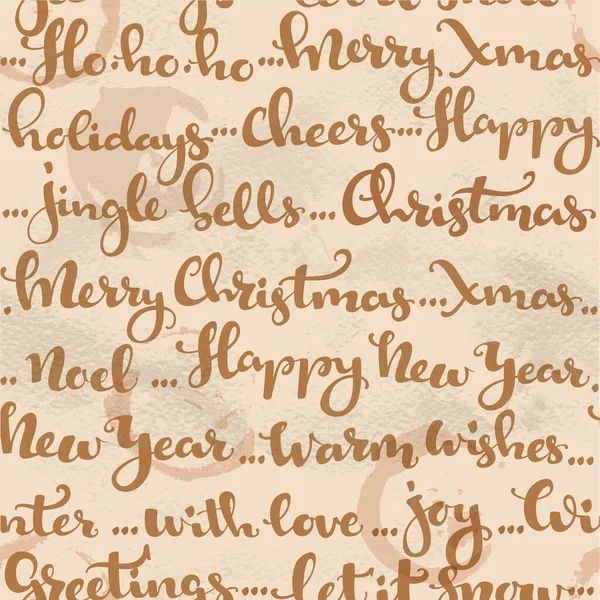 ...Ho-ho-ho...Merry Xmas
holidays...Cheers...Happy
...jingle bells...Christmas
.Merry Christmas...Xmas..
..Noel...Happy New Year.
New Year...Warm wishes...
nter...with love...joy...Wi
Greetings....Let it snow...